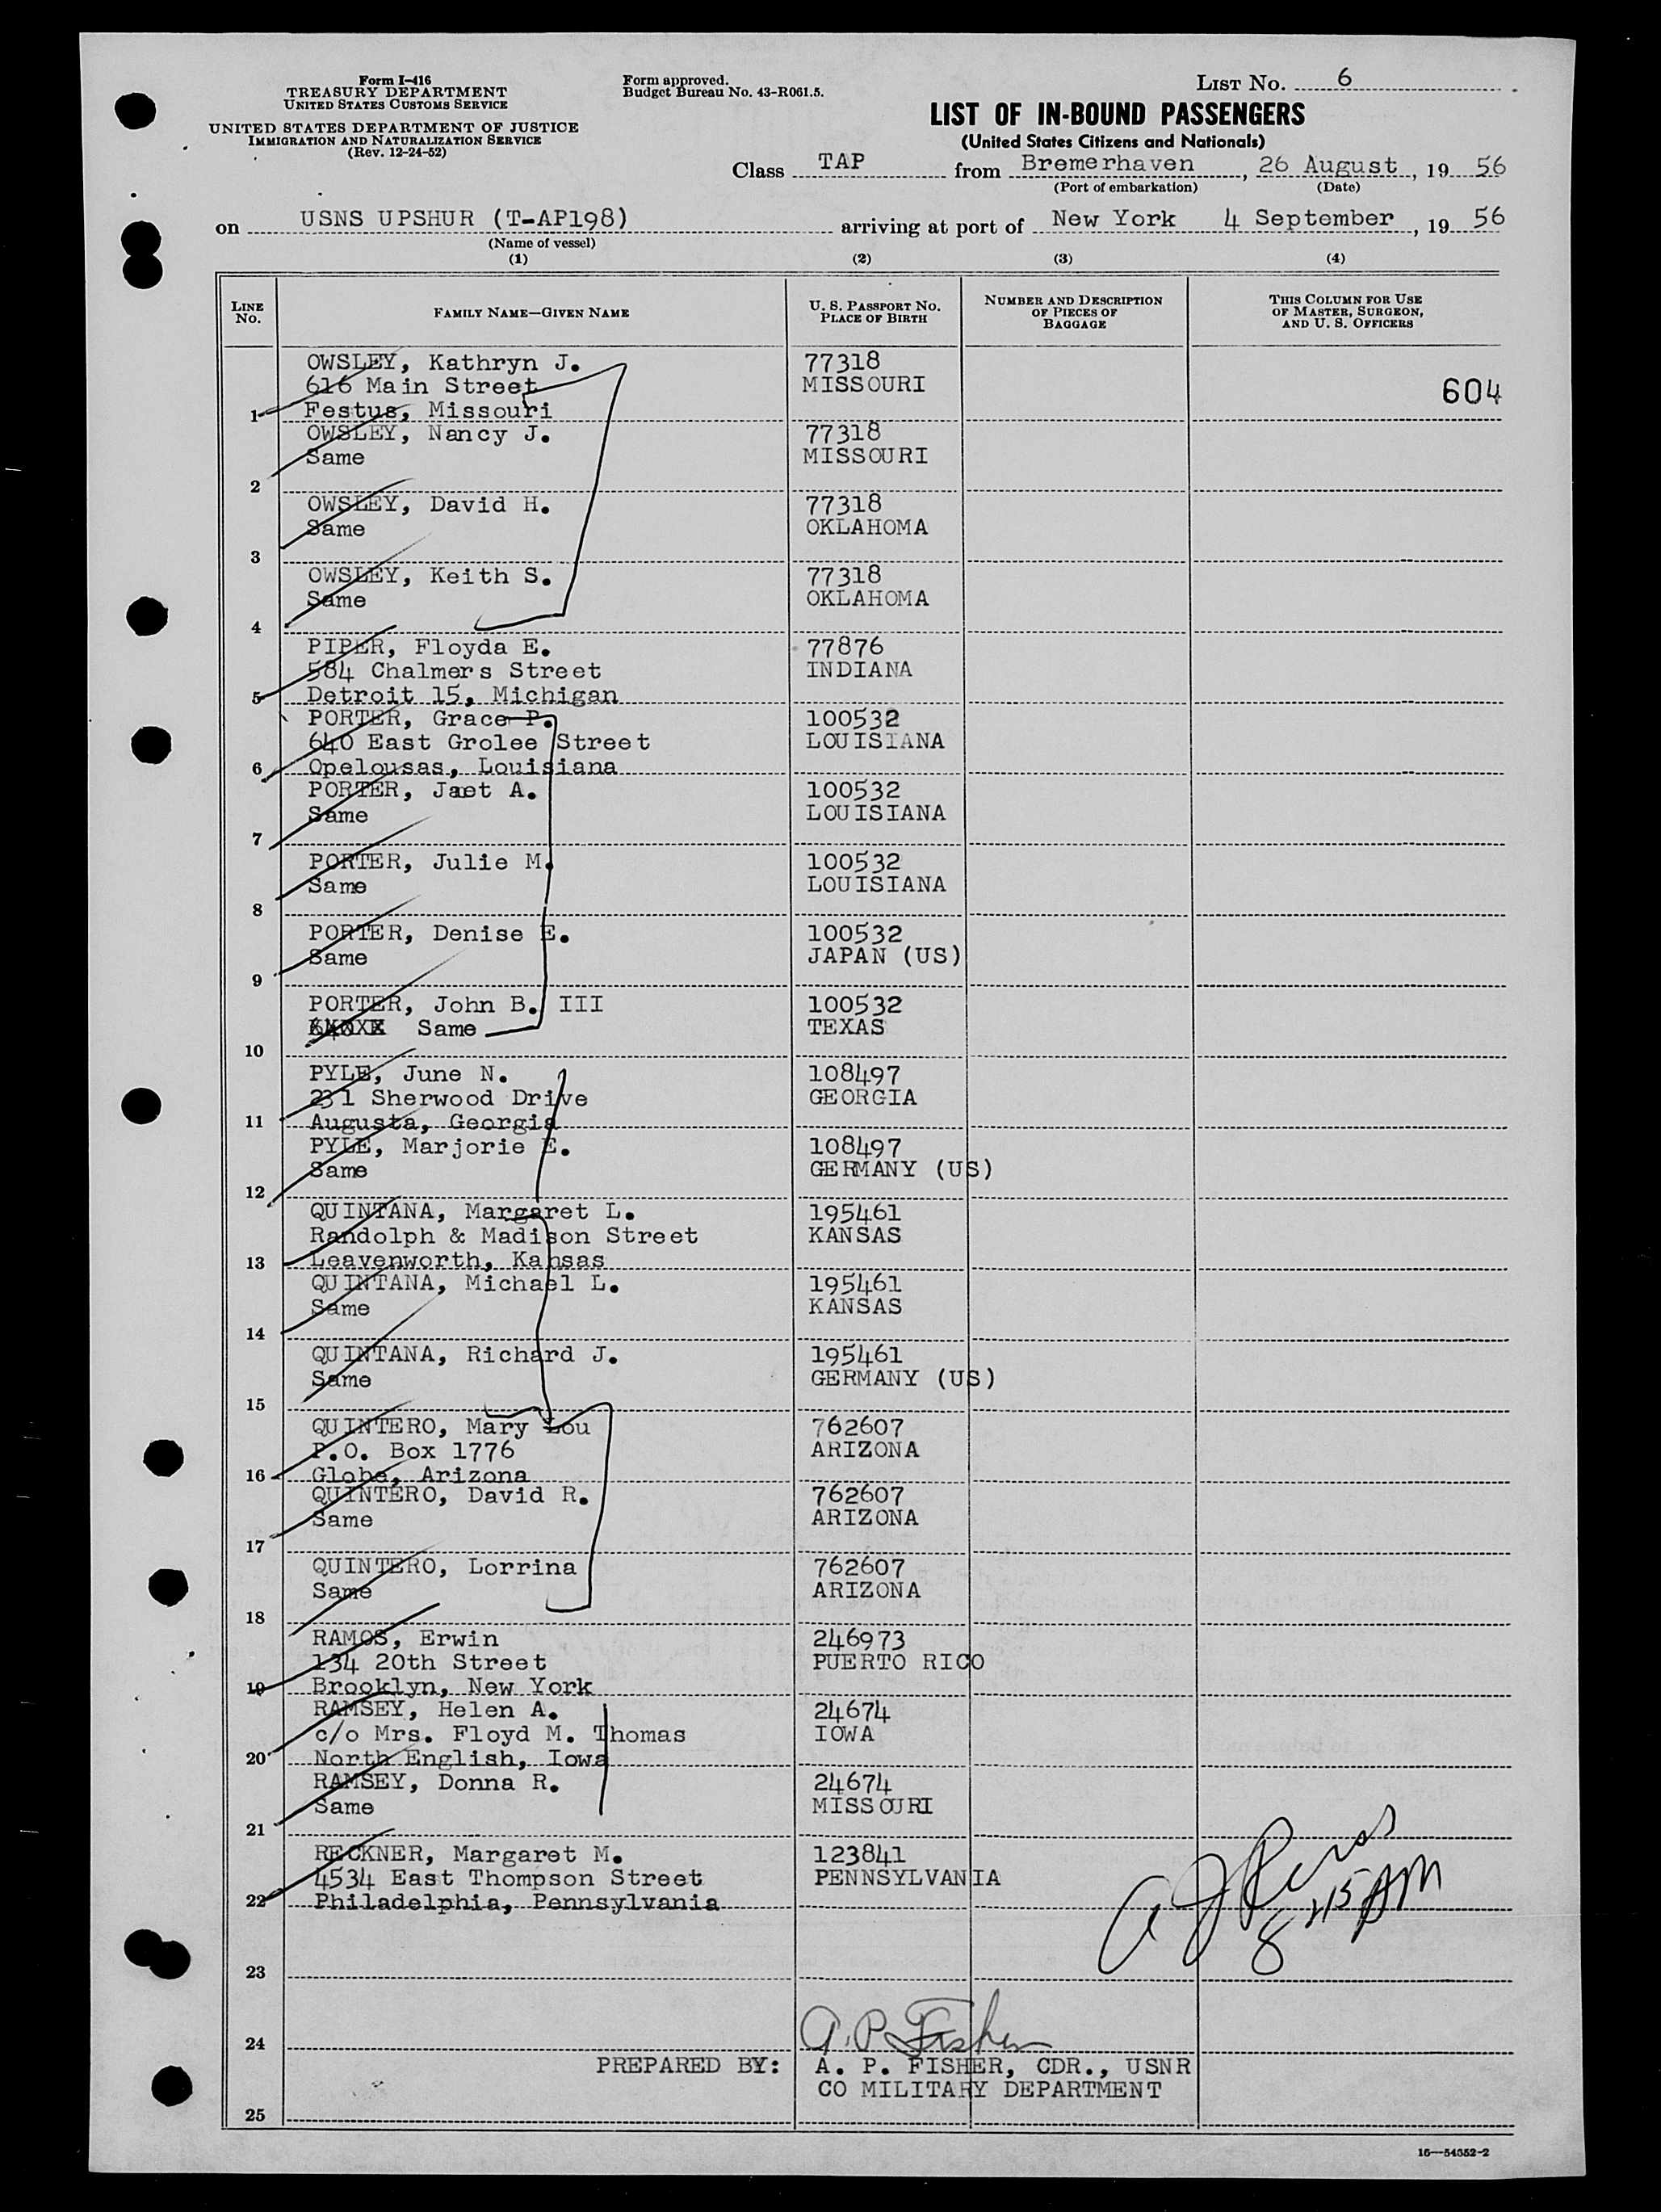 Form I-416
TREASURY DEPARTMENT
UNITED STATES CUSTOMS SERVICE
UNITED STATES DEPARTMENT OF JUSTICE
IMMIGRATION AND NATURALIZATION SERVICE
(Rev. 12-24-52)
Form approved.
Budget Bureau No. 43-R061.5.
LIST No. 6
LIST OF IN-BOUND PASSENGERS
(United States Citizens and Nationals)
Class TAP from Bremerhaven, 26 August, 19 56
(Port of embarkation) (Date)
on USNS UPSHUR (T-AP198) arriving at port of New York 4 September, 19 56
(Name of vessel)
(1) (2) (3) (4)
LINE No. FAMILY NAME—GIVEN NAME U. S. PASSPORT No. PLACE OF BIRTH NUMBER AND DESCRIPTION OF PIECES OF BAGGAGE THIS COLUMN FOR USE OF MASTER, SURGEON, AND U. S. OFFICERS
OWSLEY, Kathryn J. 77318
616 Main Street MISSOURI 604
1 Festus, Missouri
OWSLEY, Nancy J. 77318
Same MISSOURI
2
OWSLEY, David H. 77318
Same OKLAHOMA
3
OWSLEY, Keith S. 77318
Same OKLAHOMA
4
PIPER, Floyda E. 77876
584 Chalmers Street INDIANA
5 Detroit 15, Michigan
PORTER, Grace P. 100532
640 East Grolee Street LOUISIANA
6 Opelousas, Louisiana
PORTER, Jaet A. 100532
Same LOUISIANA
7
PORTER, Julie M. 100532
Same LOUISIANA
8
PORTER, Denise E. 100532
Same JAPAN (US)
9
PORTER, John B. III 100532
Same TEXAS
10
PYLE, June N. 108497
231 Sherwood Drive GEORGIA
11 Augusta, Georgia
PYLE, Marjorie E. 108497
Same GERMANY (US)
12
QUINTANA, Margaret L. 195461
Randolph & Madison Street KANSAS
13 Leavenworth, Kansas
QUINTANA, Michael L. 195461
Same KANSAS
14
QUINTANA, Richard J. 195461
Same GERMANY (US)
15
QUINTERO, Mary Lou 762607
P.O. Box 1776 ARIZONA
16 Globe, Arizona
QUINTERO, David R. 762607
Same ARIZONA
17
QUINTERO, Lorrina 762607
Same ARIZONA
18
RAMOS, Erwin 246973
134 20th Street PUERTO RICO
19 Brooklyn, New York
RAMSEY, Helen A. 24674
c/o Mrs. Floyd M. Thomas IOWA
20 North English, Iowa
RAMSEY, Donna R. 24674
Same MISSOURI
21
RECKNER, Margaret M. 123841
4534 East Thompson Street PENNSYLVANIA
22 Philadelphia, Pennsylvania
8 45 AM
23
A. P. Fisher
24
PREPARED BY: A. P. FISHER, CDR., USNR
CO MILITARY DEPARTMENT
25
16—54652-2